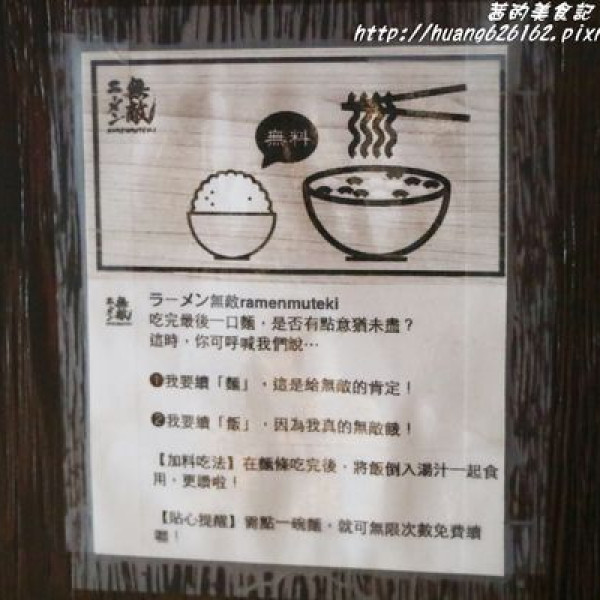 茜的美食記
http://huang626162.pix
無敵
ラーメン
RAMENMUTEKI
無料
無敵
ラーメン
ラーメン無敵ramenmuteki
吃完最後一口麵，是否有點意猶未盡？
這時，你可呼喊我們說…
❶我要續「麵」，這是給無敵的肯定！
❷我要續「飯」，因為我真的無敵餓！
【加料吃法】在麵條吃完後，將飯倒入湯汁一起食
用，更讚啦！
【貼心提醒】需點一碗麵，就可無限次數免費續
喔！